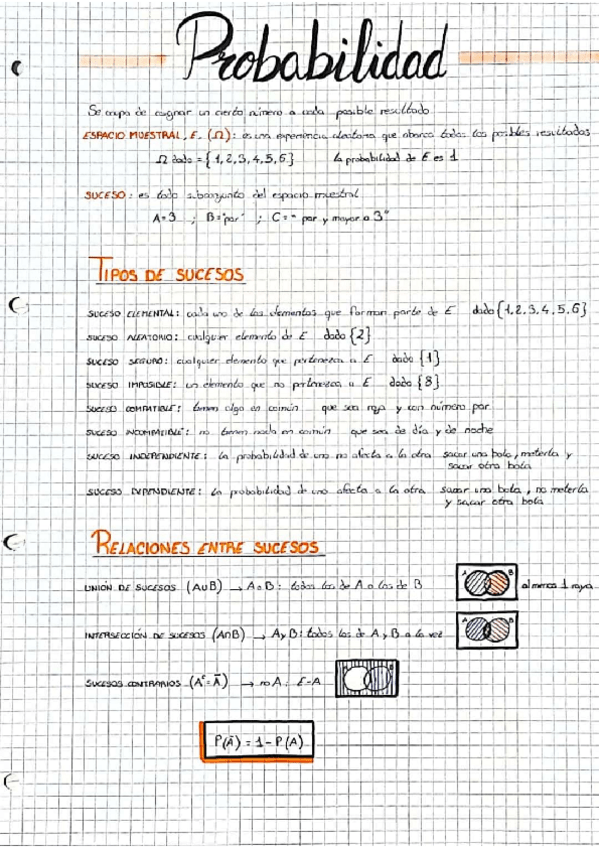 Probabilidad
Se ocupa de asignar un cierto número a cada posible resultado
ESPACIO MUESTRAL, E, (Ω): es una experiencia aleatoria que abarca todos los posibles resultados
Ω dado = {1, 2, 3, 4, 5, 6} La probabilidad de E es 1
SUCESO: es todo subconjunto del espacio muestral
A=3 ; B="par" ; C=" par y mayor a 3"
TIPOS DE SUCESOS
SUCESO ELEMENTAL: cada uno de los elementos que forman parte de E dado {1,2,3,4,5,6}
SUCESO ALEATORIO: cualquier elemento de E dado {2}
SUCESO SEGURO: cualquier elemento que pertenezca a E dado {1}
SUCESO IMPOSIBLE: un elemento que no pertenezca a E dado {8}
SUCESO COMPATIBLE: tienen algo en común que sea roja y con número par
SUCESO INCOMPATIBLE: no tienen nada en común que sea de día y de noche
SUCESO INDEPENDIENTE: la probabilidad de uno no afecta a la otra sacar una bola, meterla y
sacar otra bola
SUCESO DEPENDIENTE: la probabilidad de uno afecta a la otra sacar una bola, no meterla
y sacar otra bola
RELACIONES ENTRE SUCESOS
UNIÓN DE SUCESOS (A∪B) → A o B: todos los de A o los de B A B al menos 1 raya
INTERSECCIÓN DE SUCESOS (A∩B) → A y B: todos los de A y B a la vez A B
SUCESOS CONTRARIOS (Aᶜ=Ā) → no A: E-A A B
P(Ā) = 1 - P(A)